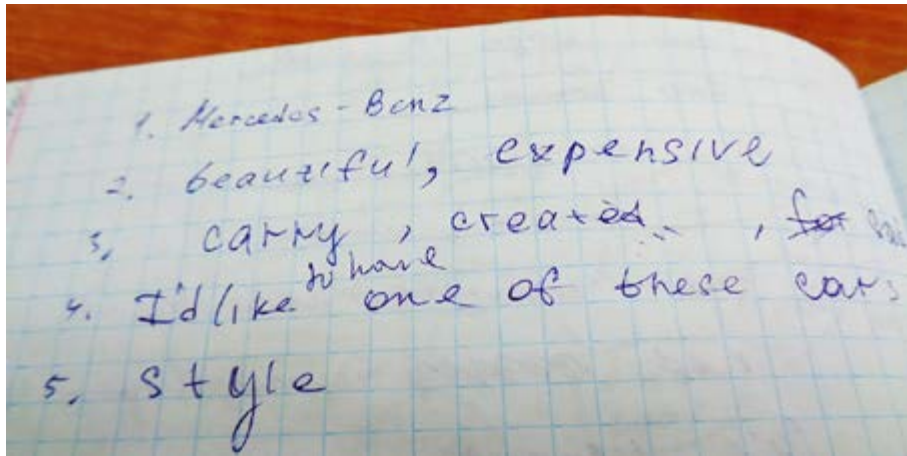 1. Mercedes - Benz
2. beautiful, expensive
3. carry, created,
4. I'd like to have one of these cars
5. style